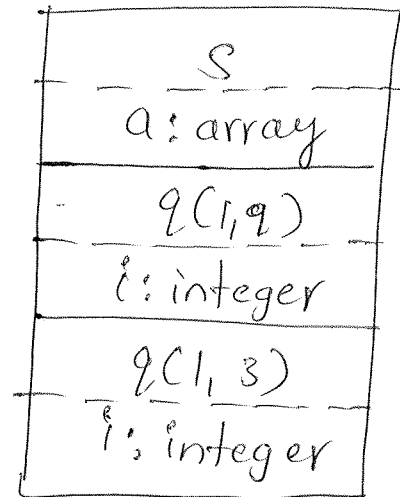 S
a: array
q(1,9)
i: integer
q(1, 3)
i: integer